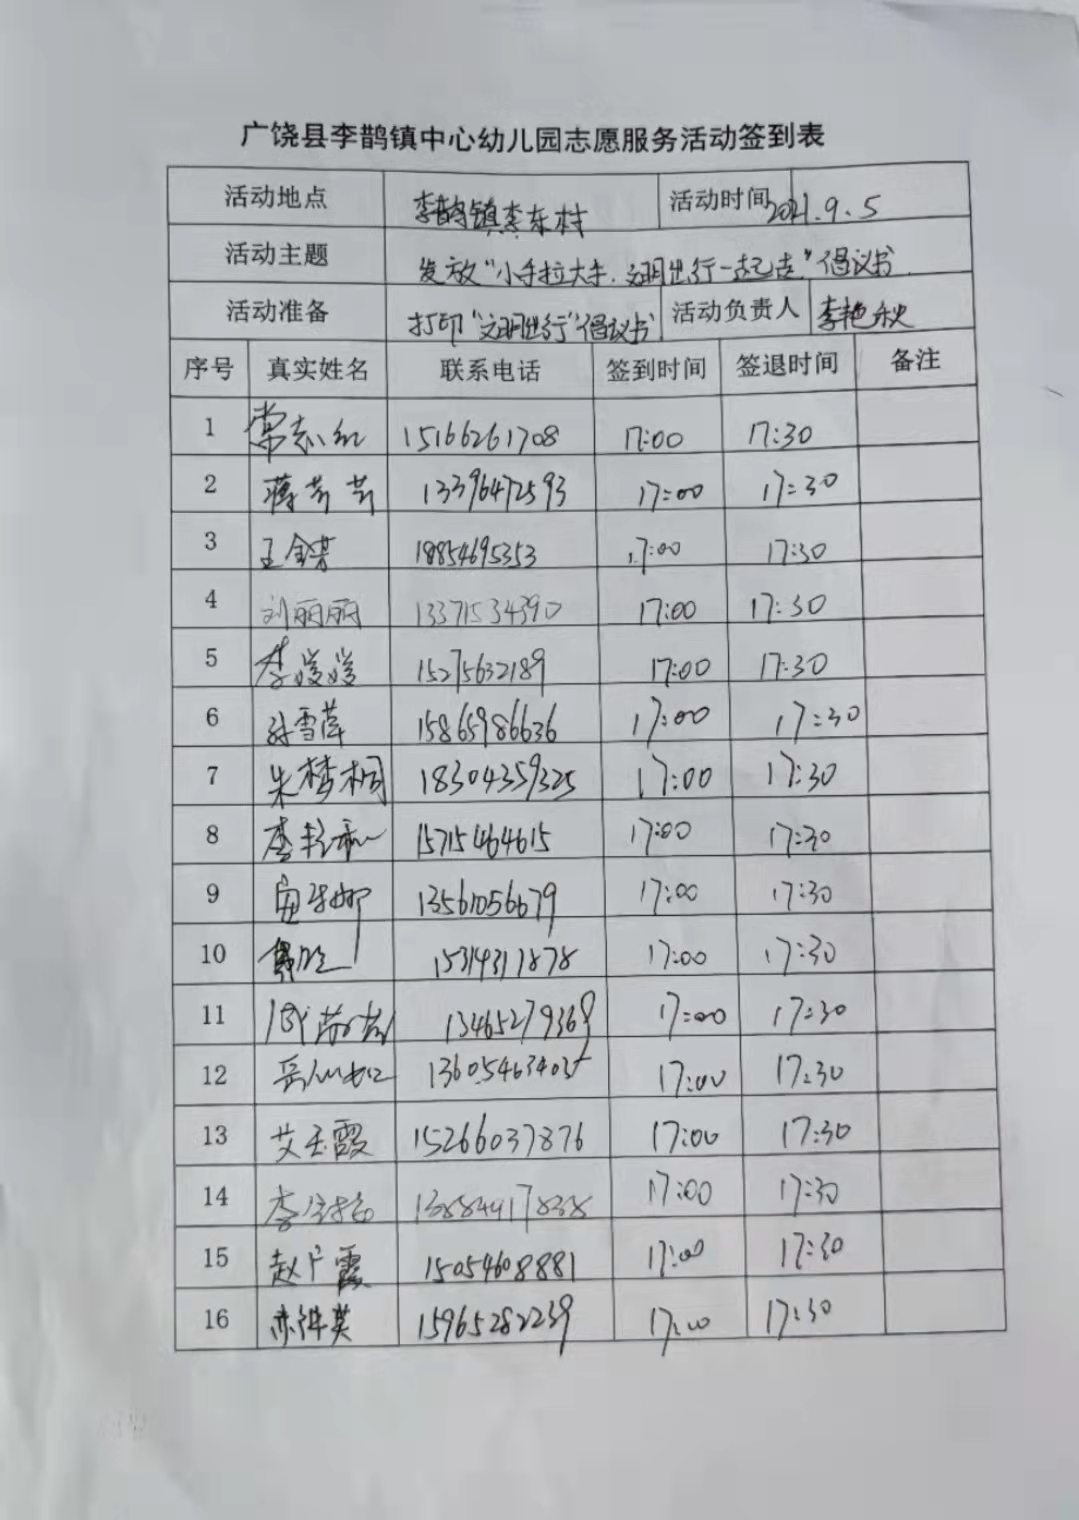 广饶县李鹊镇中心幼儿园志愿服务活动签到表
活动地点 李鹊镇李东村 活动时间 2021.9.5
活动主题 发放“小手拉大手.文明出行一起走”倡议书
活动准备 打印“文明出行”倡议书 活动负责人 李艳秋
序号 真实姓名 联系电话 签到时间 签退时间 备注
1 常志红 15166261708 17:00 17:30
2 蒋芳芳 13396472593 17:00 17:30
3 18854695353 17:00 17:30
4 刘丽丽 13371534390 17:00 17:30
5 李媛媛 15275632189 17:00 17:30
6 孙雪萍 15865986636 17:00 17:30
7 朱梦桐 18304359325 17:00 17:30
8 李艳秋 15715464615 17:00 17:30
9 13561056679 17:00 17:30
10 15314311878 17:00 17:30
11 13465279369 17:00 17:30
12 17:00 17:30
13 艾玉霞 15266037876 17:00 17:30
14 17:00 17:30
15 赵广霞 15054608881 17:00 17:30
16 15965282239 17:00 17:30